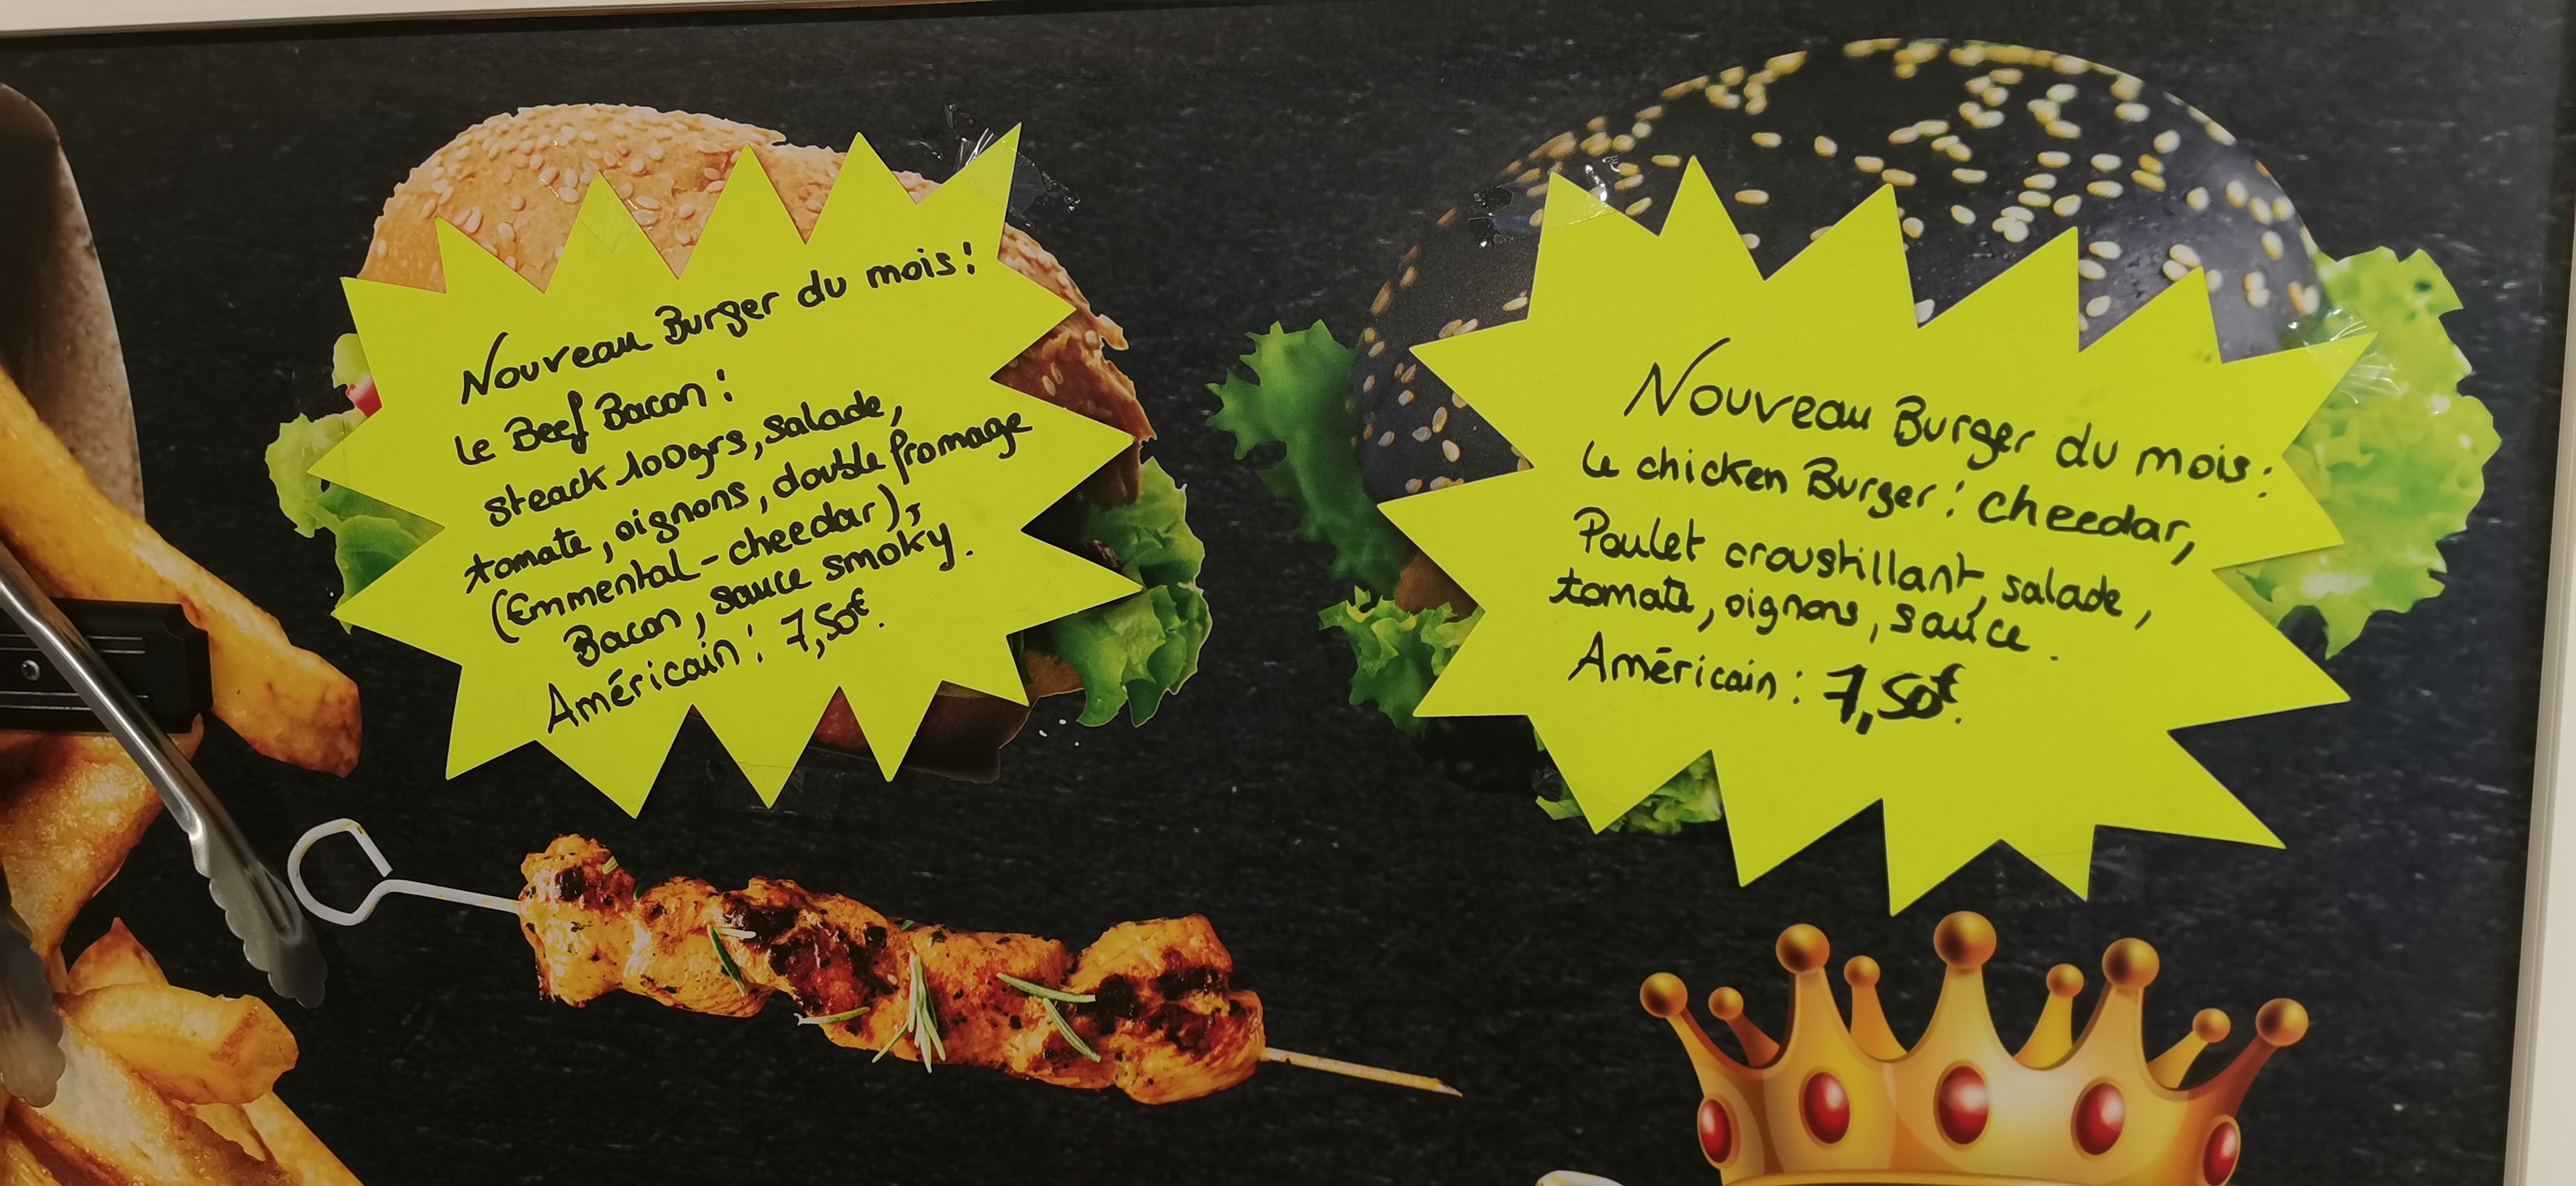 Nouveau Burger du mois !
Le Beef Bacon :
steack 100grs, salade,
tomate, oignons, double fromage
(Emmental-cheedar),
Bacon, sauce smoky.
Américain : 7,50€.
Nouveau Burger du mois :
Le chicken Burger : cheedar,
Poulet croustillant, salade,
tomate, oignons, sauce.
Américain : 7,50€.